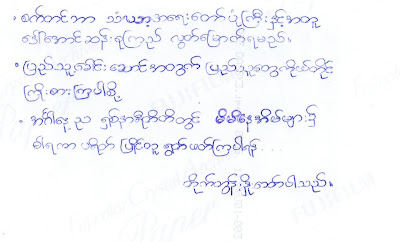 • စက်တင်ဘာ သံဃာ့အရေးတော်ပုံကြီးနှင့်အတူ
ဒေါ်အောင်ဆန်းစုကြည် လွတ်မြောက်ရမည်။
• ပြည်သူ့ခေါင်းဆောင်အတွက် ပြည်သူတွေကိုယ်တိုင်
ကြိုးစားကြပါစို့
• အင်္ဂါနေ့ည ရှစ်နာရီတိတိတွင် မိမိနေအိမ်များ၌
ပါရကာ ပရိတ် ပြိုင်တူ ရွတ်ဖတ်ကြပါရန် . . .
တိုက်တွန်းနှိုးဆော်ပါသည်။
FUJIFILM